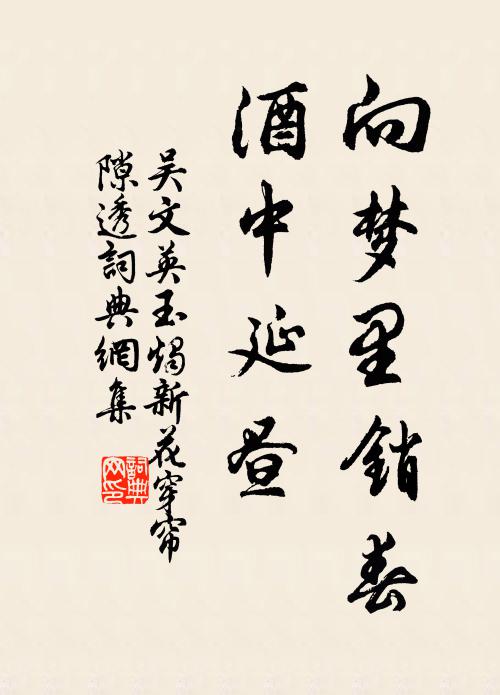 向梦里销春
酒中延昼
吴文英玉燭新花穿帘
隙透詞典網集
詞典
网印